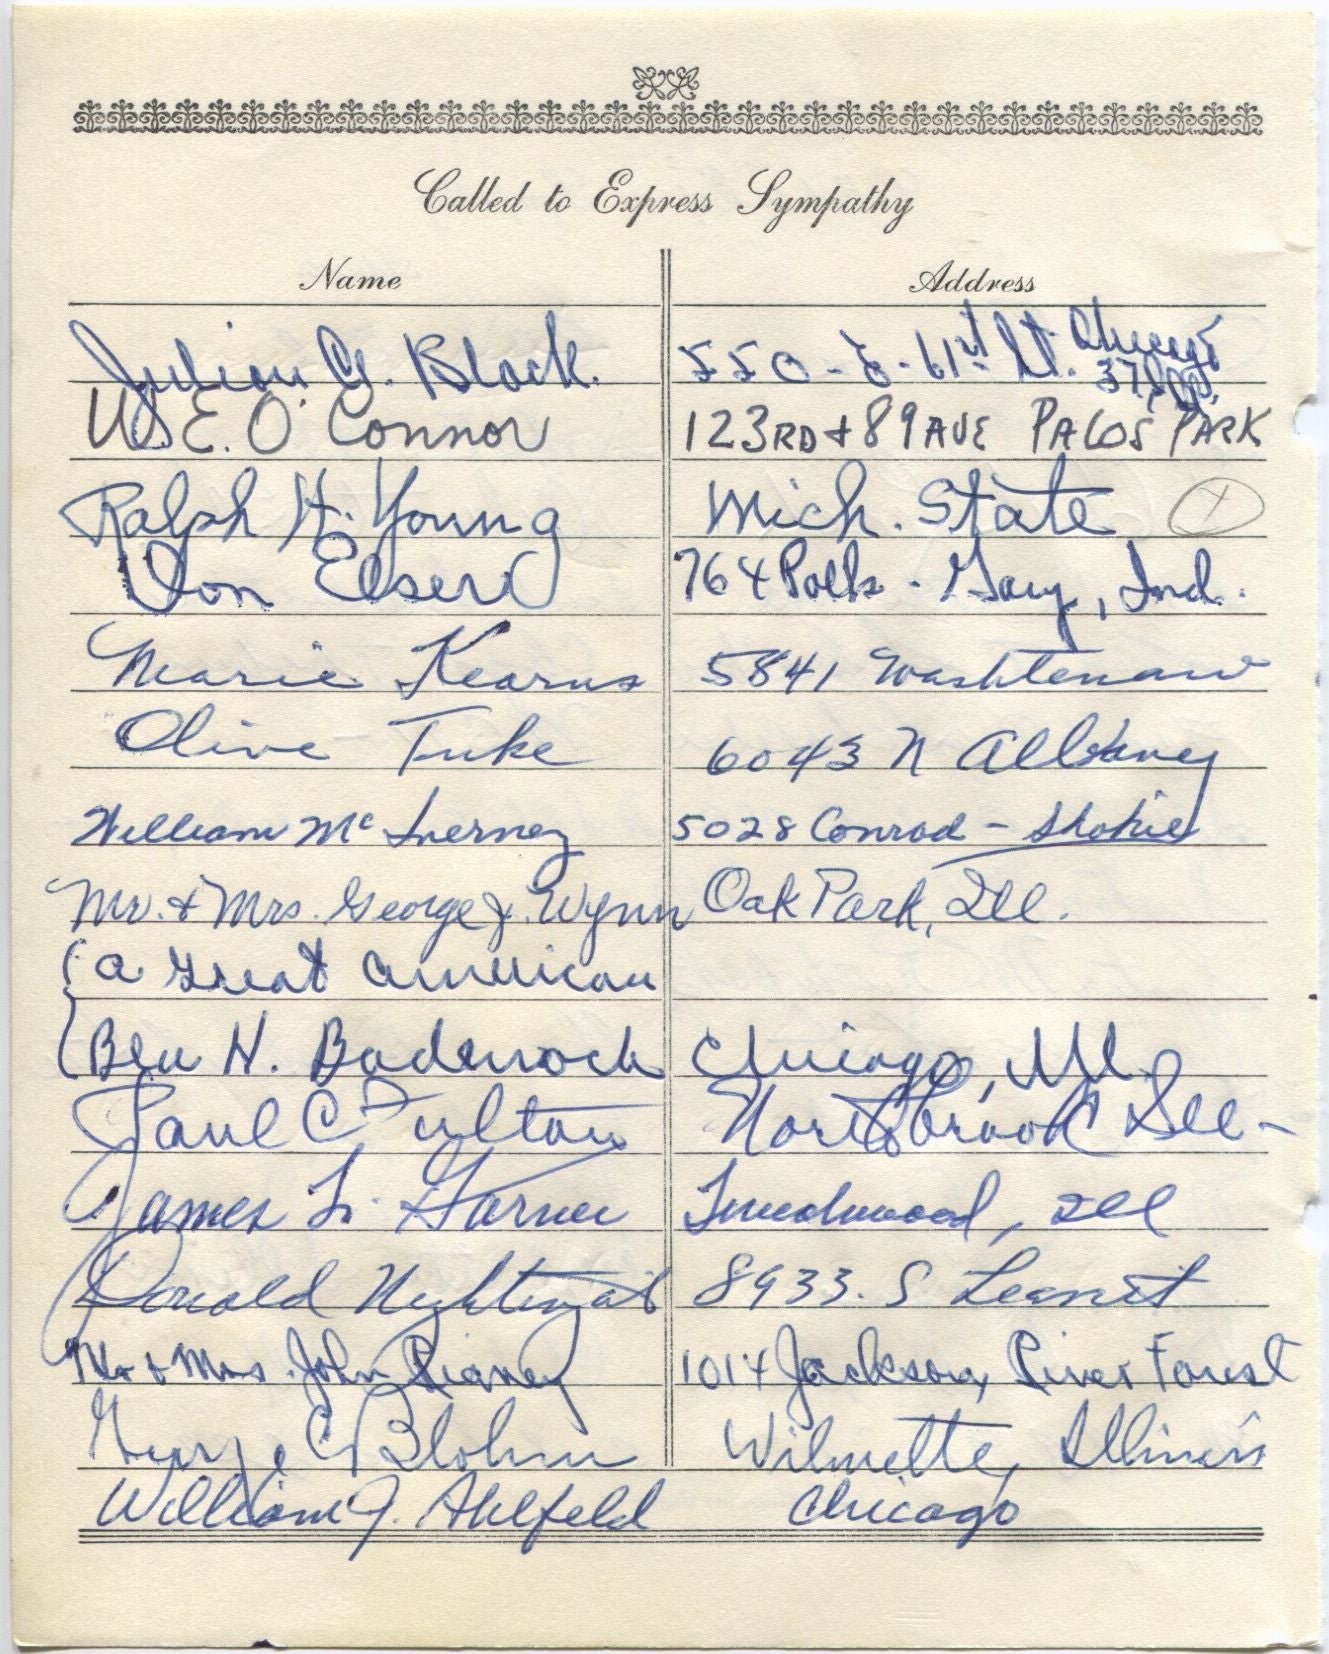 Called to Express Sympathy
Name Address
Julian G. Black. 550-E-61st St. Chicago 37,
W E. O'Connor 123RD + 89 AVE PALOS PARK
Ralph H. Young Mich. State
Von Elser 764 Polk - Gary, Ind.
Marie Kearns 5841 Washtenaw
Olive Tuke 6043 N Albany
William McInerney 5028 Conrad - Skokie
Mr. & Mrs. George J. Wynn Oak Park, Ill.
a Great American
Ben H. Badenoch Chicago, Ill.
Paul C Fulton Northbrook Ill-
James L. Garner Ill
Donald Nightingale 8933. S
Mr & Mrs. John Rigney 1014 Jackson, River Forest
George C Blohm Wilmette, Illinois
William J. Ahlfeld Chicago